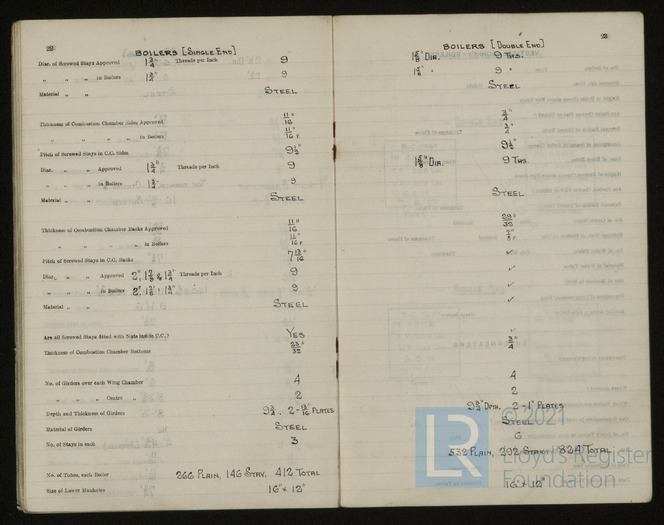 22
BOILERS [SINGLE END]
Diar. of Screwed Stays Approved 1 3/4" Threads per Inch 9
" " " in Boilers 1 3/4" " 9
Material " " STEEL
Thickness of Combustion Chamber Sides Approved 11/16"
" " " " in Boilers 11/16" F.
Pitch of Screwed Stays in C.C. Sides 9 1/2"
Diar. " " Approved 1 3/4" Threads per Inch 9
" " " in Boilers 1 3/4" " 9
Material " " STEEL
Thickness of Combustion Chamber Backs Approved 11/16"
" " " " in Boilers 11/16" F.
Pitch of Screwed Stays in C.C. Backs 7 13/16"
Diar. " " Approved Threads per Inch 9
" " " in Boilers " 9
Material " " STEEL
Are all Screwed Stays fitted with Nuts inside C.C.? YES
Thickness of Combustion Chamber Bottoms 23/32"
No. of Girders over each Wing Chamber 4
" " " Centre " 2
Depth and Thickness of Girders PLATES
Material of Girders STEEL
No. of Stays in each 3
No. of Tubes, each Boiler 266 PLAIN, 146 STAY, 412 TOTAL
Size of Lower Manholes 16" × 12"
23
BOILERS [DOUBLE END]
DIA. 9 THS.
9 "
STEEL
3/4"
3/4"
9 1/2"
DIA. 9 THS.
STEEL
✓
✓
✓
✓
✓
3/4"
4
2
2 - 1" PLATES
STEEL
6
532 PLAIN, 292 STAY, 824 TOTAL
16" × 12"
LR
© 2021
Lloyd's Register
Foundation